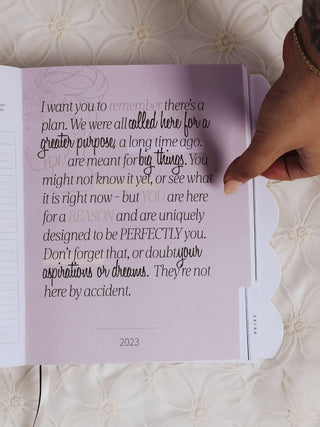 I want you to remember there's a
plan. We were all called here for a
greater purpose, a long time ago.
YOU are meant for big things. You
might not know it yet, or see what
it is right now - but YOU are here
for a REASON and are uniquely
designed to be PERFECTLY you.
Don't forget that, or doubt your
aspirations or dreams. They're not
here by accident.
2023
EXTRA